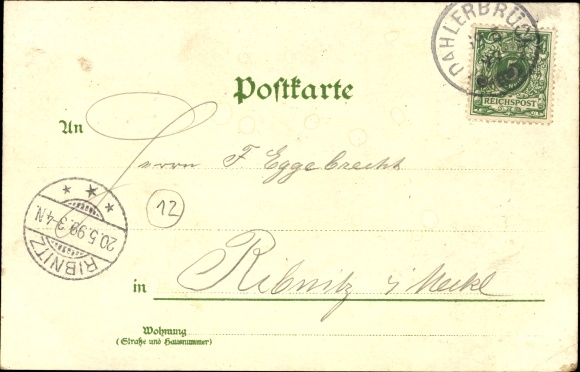 DAHLERBRÜCK
5
REICHSPOST
Postkarte
An
Herrn F Eggebrecht
RIBNITZ
20.5.99.3-4N.
12
in Ribnitz i/Meckl
Wohnung
(Straße und Hausnummer)